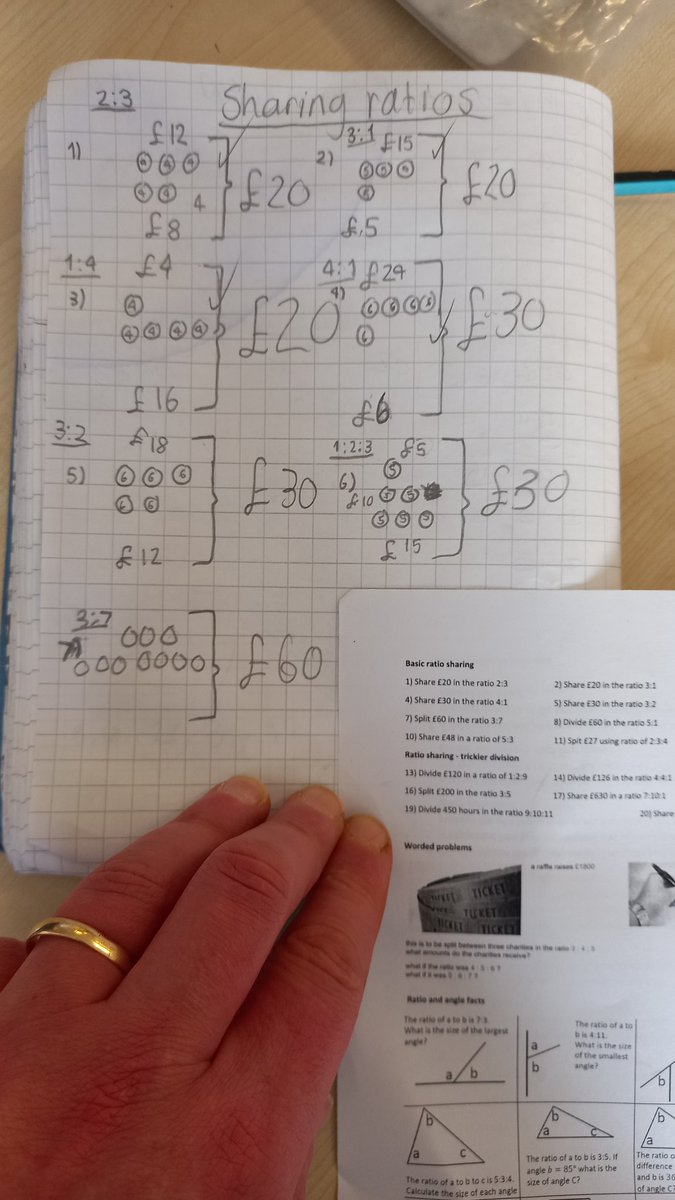 2:3 Sharing ratios
1) £12 2) 3:1 £15
4 4 4 5 5 5
4 4 4 £20 5 £20
£8 £5
1:4 £4 4:1 £24
3) 4 4) 6 6 6 6
4 4 4 4 £20 6 £30
£16 £6
3:2 £18 1:2:3 £5
5) 6 6 6 6) 5
6 6 £30 £10 5 5 £30
5 5 5
£12 £15
3:7
£60
Basic ratio sharing
1) Share £20 in the ratio 2:3 2) Share £20 in the ratio 3:1
4) Share £30 in the ratio 4:1 5) Share £30 in the ratio 3:2
7) Split £60 in the ratio 3:7 8) Divide £60 in the ratio 5:1
10) Share £48 in a ratio of 5:3 11) Spit £27 using ratio of 2:3:4
Ratio sharing - trickier division
13) Divide £120 in a ratio of 1:2:9 14) Divide £126 in the ratio 4:4:1
16) Split £200 in the ratio 3:5 17) Share £630 in a ratio 7:10:1
19) Divide 450 hours in the ratio 9:10:11 20) Share
Worded problems
a raffle raises £1800
TICKET TICKET
TICKET
TICKET TICKET
this is to be split between three charities in the ratio
what amounts do the charities receive?
what if the ratio was 4 : 5 : 6 ?
what if it was
Ratio and angle facts
The ratio of a to b is 7:3.
What is the size of the largest
angle?
a b
The ratio of a to
b is 4:11.
What is the size
of the smallest
angle?
a
b
b
b
a c
The ratio of a to b to c is 5:3:4.
Calculate the size of each angle
b
a c
The ratio of a to b is 3:5. If
angle b = 85° what is the
size of angle C?
b
a
The ratio o
difference
and b is 36
of angle C?